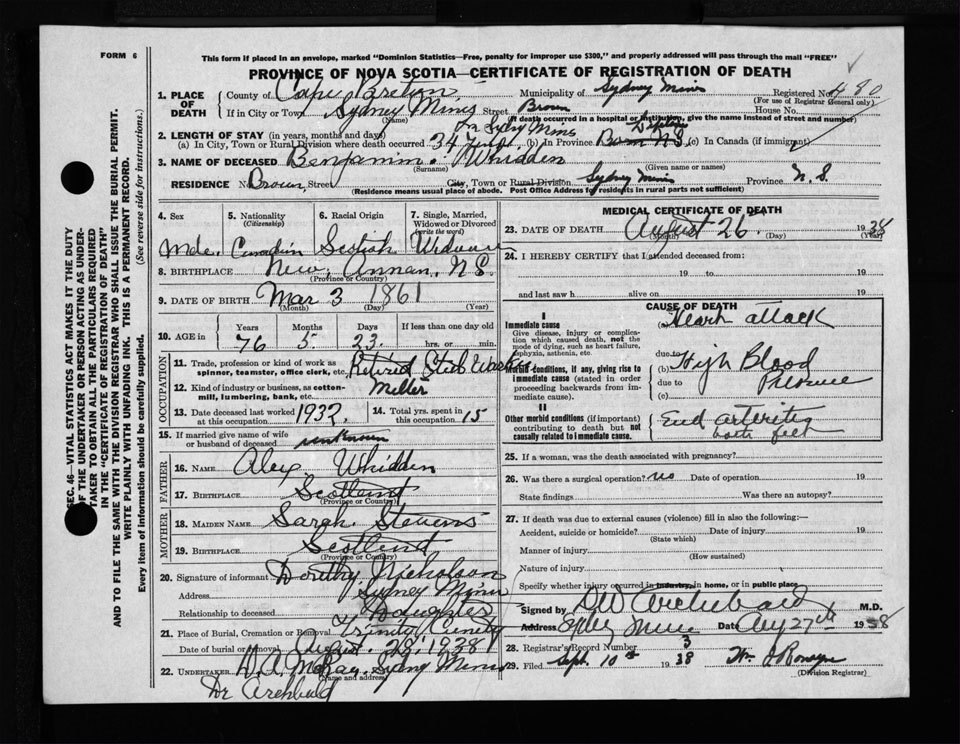 FORM 6
This form if placed in an envelope, marked "Dominion Statistics—Free, penalty for improper use $300," and properly addressed will pass through the mail "FREE"
PROVINCE OF NOVA SCOTIA—CERTIFICATE OF REGISTRATION OF DEATH
1. PLACE OF DEATH
County of Cape Breton Municipality of Sydney Mines Registered No. 480
(For use of Registrar General only)
If in City or Town Sydney Mines Street Brown House No.
(Name) (If death occurred in a hospital or institution, give the name instead of street and number)
2. LENGTH OF STAY (in years, months and days) Sydney Mines
(a) In City, Town or Rural Division where death occurred 34 (b) In Province Born N.S. (c) In Canada (if immigrant)
3. NAME OF DECEASED Benjamin Whidden
(Surname) (Given name or names)
RESIDENCE No. Brown Street City, Town or Rural Division Sydney Mines Province N.S.
(Residence means usual place of abode. Post Office Address for residents in rural parts not sufficient)
4. Sex 5. Nationality (Citizenship) 6. Racial Origin 7. Single, Married, Widowed or Divorced (write the word)
Male Canadian Scotish
8. BIRTHPLACE New Annan, N.S.
(Province or Country)
9. DATE OF BIRTH Mar 3 1861
(Month) (Day) (Year)
10. AGE in Years Months Days If less than one day old
76 5 23 hrs. or min.
OCCUPATION
11. Trade, profession or kind of work as spinner, teamster, office clerk, etc. Retired Steel Worker
12. Kind of industry or business, as cotton-mill, lumbering, bank, etc.
13. Date deceased last worked at this occupation 1932 14. Total yrs. spent in this occupation 15
15. If married give name of wife or husband of deceased unknown
FATHER
16. NAME Alex Whidden
17. BIRTHPLACE Scotland
(Province or Country)
MOTHER
18. MAIDEN NAME Sarah Stevens
19. BIRTHPLACE Scotland
(Province or Country)
20. Signature of informant Dorothy Nicholson
Address Sydney Mines
Relationship to deceased Daughter
21. Place of Burial, Cremation or Removal Trinity Cemetery
Date of burial or removal August 28, 1938
22. UNDERTAKER Sydney Mines
(Name and address)
Dr Archibald
MEDICAL CERTIFICATE OF DEATH
23. DATE OF DEATH August 26 1938
(Month) (Day) (Year)
24. I HEREBY CERTIFY that I attended deceased from:
19 to 19
and last saw h alive on 19
CAUSE OF DEATH
I
Immediate cause (a) Heart attack
Give disease, injury or complication which caused death, not the mode of dying, such as heart failure, asphyxia, asthenia, etc.
due to
Morbid conditions, if any, giving rise to immediate cause (stated in order proceeding backwards from immediate cause).
(b) High Blood Pressure
due to
(c)
II
Other morbid conditions (if important) contributing to death but not causally related to immediate cause.
End arteritis
both feet
25. If a woman, was the death associated with pregnancy?
26. Was there a surgical operation? no Date of operation 19
State findings Was there an autopsy?
27. If death was due to external causes (violence) fill in also the following:—
Accident, suicide or homicide? Date of injury 19
(State which)
Manner of injury
(How sustained)
Nature of injury
Specify whether injury occurred in industry, in home, or in public place
Signed by DW Archibald M.D.
Address Sydney Mines Date Aug 27th 1938
28. Registrar's Record Number 3
29. Filed Sept. 10th 1938
(Division Registrar)
SEC. 46—VITAL STATISTICS ACT MAKES IT THE DUTY
OF THE UNDERTAKER OR PERSON ACTING AS UNDER-
TAKER TO OBTAIN ALL THE PARTICULARS REQUIRED
IN THE "CERTIFICATE OF REGISTRATION OF DEATH"
AND TO FILE THE SAME WITH THE DIVISION REGISTRAR WHO SHALL ISSUE THE BURIAL PERMIT.
WRITE PLAINLY WITH UNFADING INK. THIS IS A PERMANENT RECORD.
Every item of information should be carefully supplied. (See reverse side for instructions.)